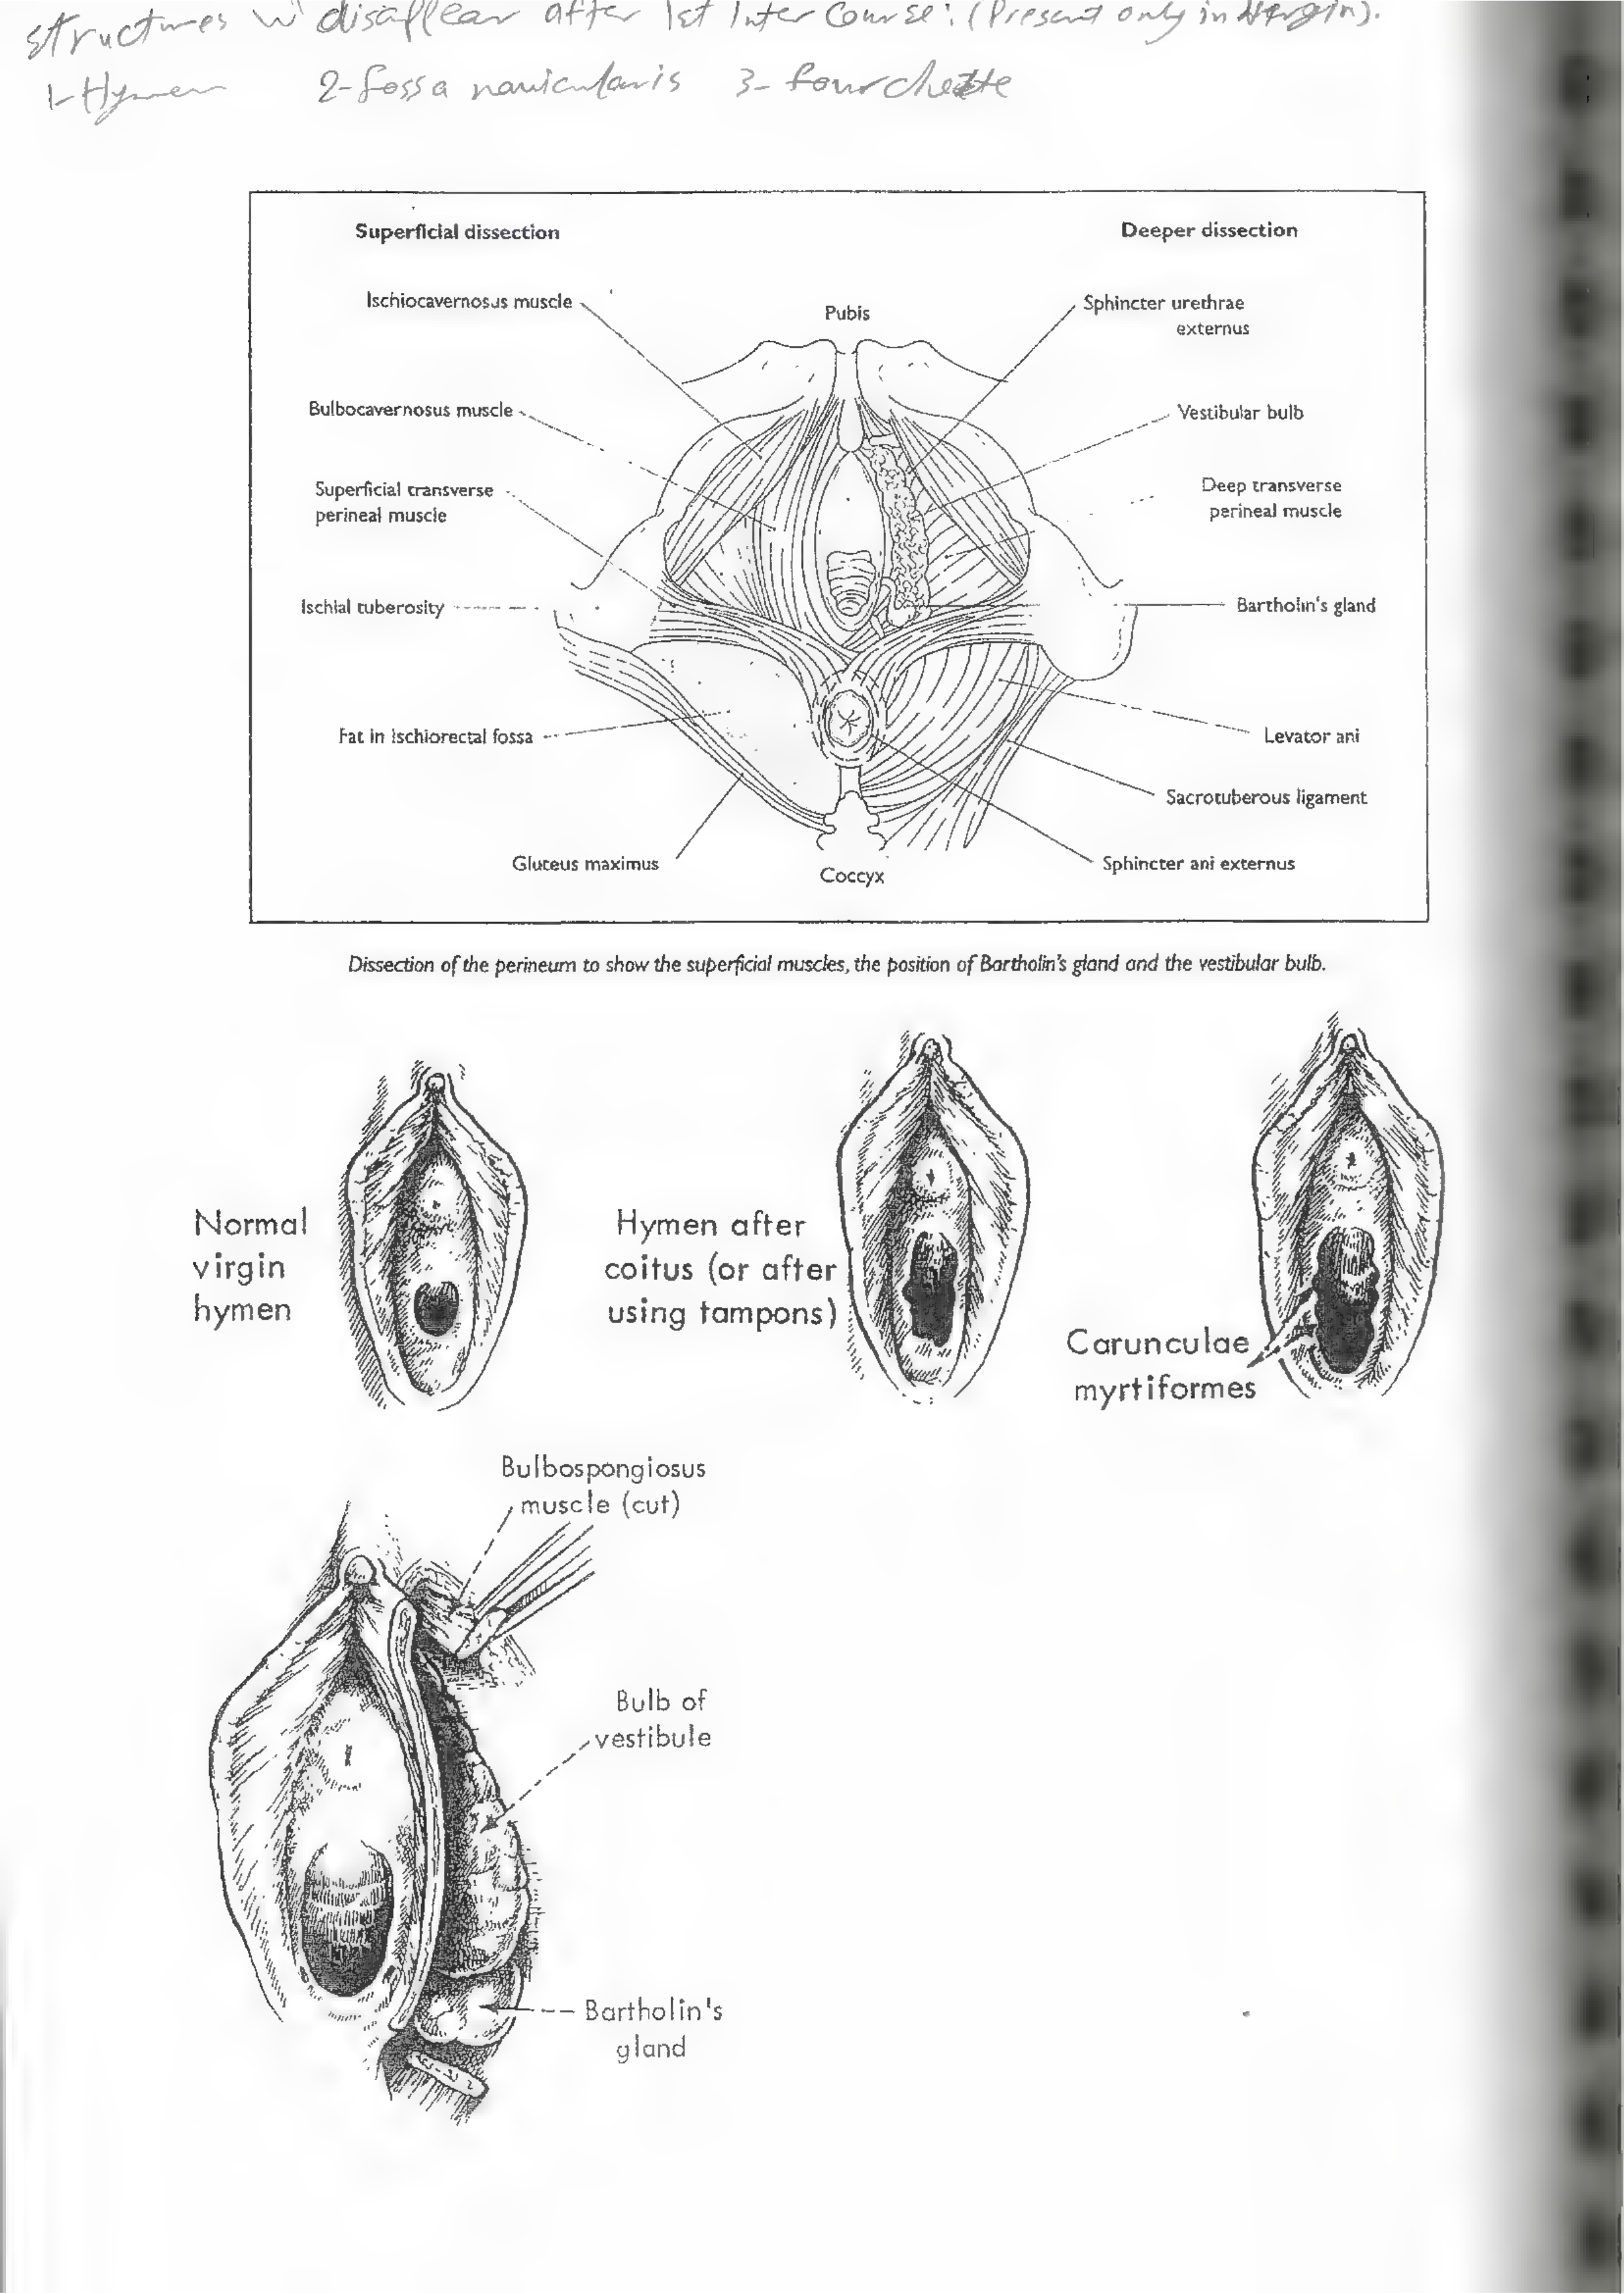 structures w disappear after 1st Inter Course: (Present only in Virgin).
1-Hymen 2-fossa navicularis 3- fourchette
Superficial dissection
Deeper dissection
Ischiocavernosus muscle
Pubis
Sphincter urethrae
externus
Bulbocavernosus muscle
Vestibular bulb
Superficial transverse
perineal muscle
Deep transverse
perineal muscle
Ischial tuberosity
Bartholin's gland
Fat in Ischiorectal fossa
Levator ani
Sacrotuberous ligament
Gluteus maximus
Coccyx
Sphincter ani externus
Dissection of the perineum to show the superficial muscles, the position of Bartholin's gland and the vestibular bulb.
Normal
virgin
hymen
Hymen after
coitus (or after
using tampons)
Carunculae
myrtiformes
Bulbospongiosus
muscle (cut)
Bulb of
vestibule
Bartholin's
gland